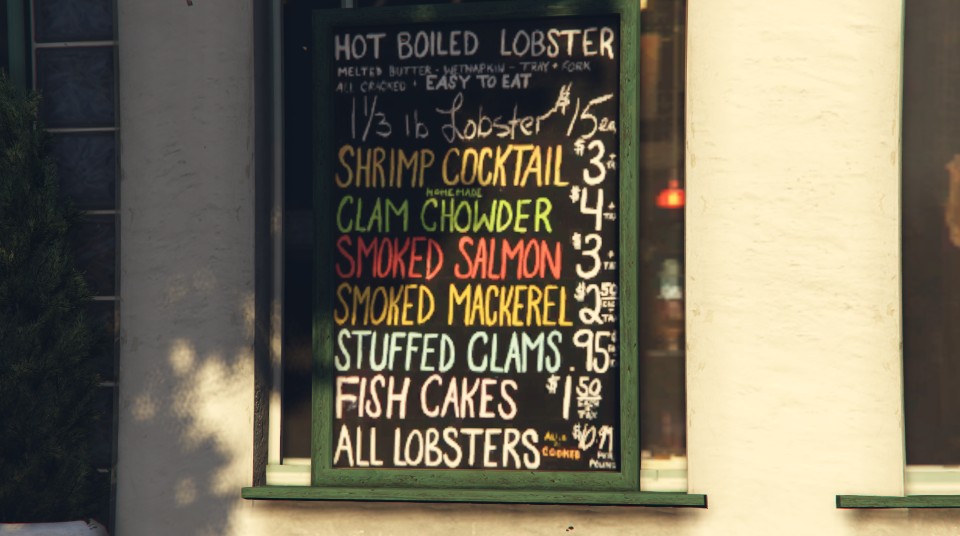 HOT BOILED LOBSTER
MELTED BUTTER - WETNAPKIN - TRAY + FORK
ALL CRACKED + EASY TO EAT
1 1/3 lb Lobster $15 ea.
SHRIMP COCKTAIL $3 +
HOMEMADE
CLAM CHOWDER $4 +
SMOKED SALMON $3 +
SMOKED MACKEREL $2 50
STUFFED CLAMS .95
FISH CAKES $1 50 EACH + TAX
ALL LOBSTERS COOKED $10.99 PER POUND